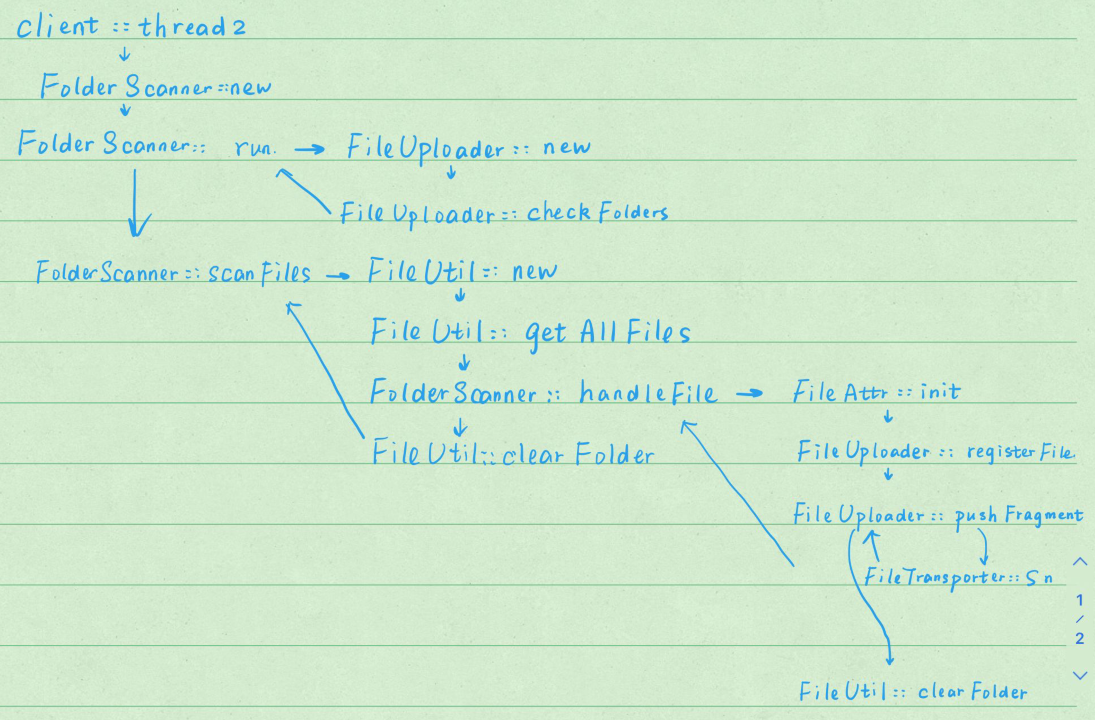 client :: thread2
Folder Scanner::new
Folder Scanner:: run. File Uploader :: new
File Uploader :: check Folders
Folder Scanner :: scan Files File Util :: new
File Util :: get All Files
Folder Scanner :: handle File File Attr :: init
File Util :: clear Folder File Uploader :: register File.
File Uploader :: push Fragment
File Transporter :: Sn
1
/
2
File Util :: clear Folder